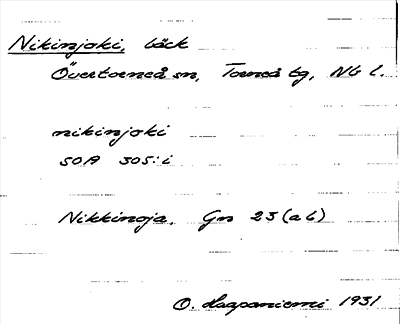 Nikinjoki, bäck
Övertorneå sn, Torneå tg, Nb l.
nikinjoki
SOA 305:i
Nikkinoja. Gn 23 (a6)
O. Haapaniemi 1931